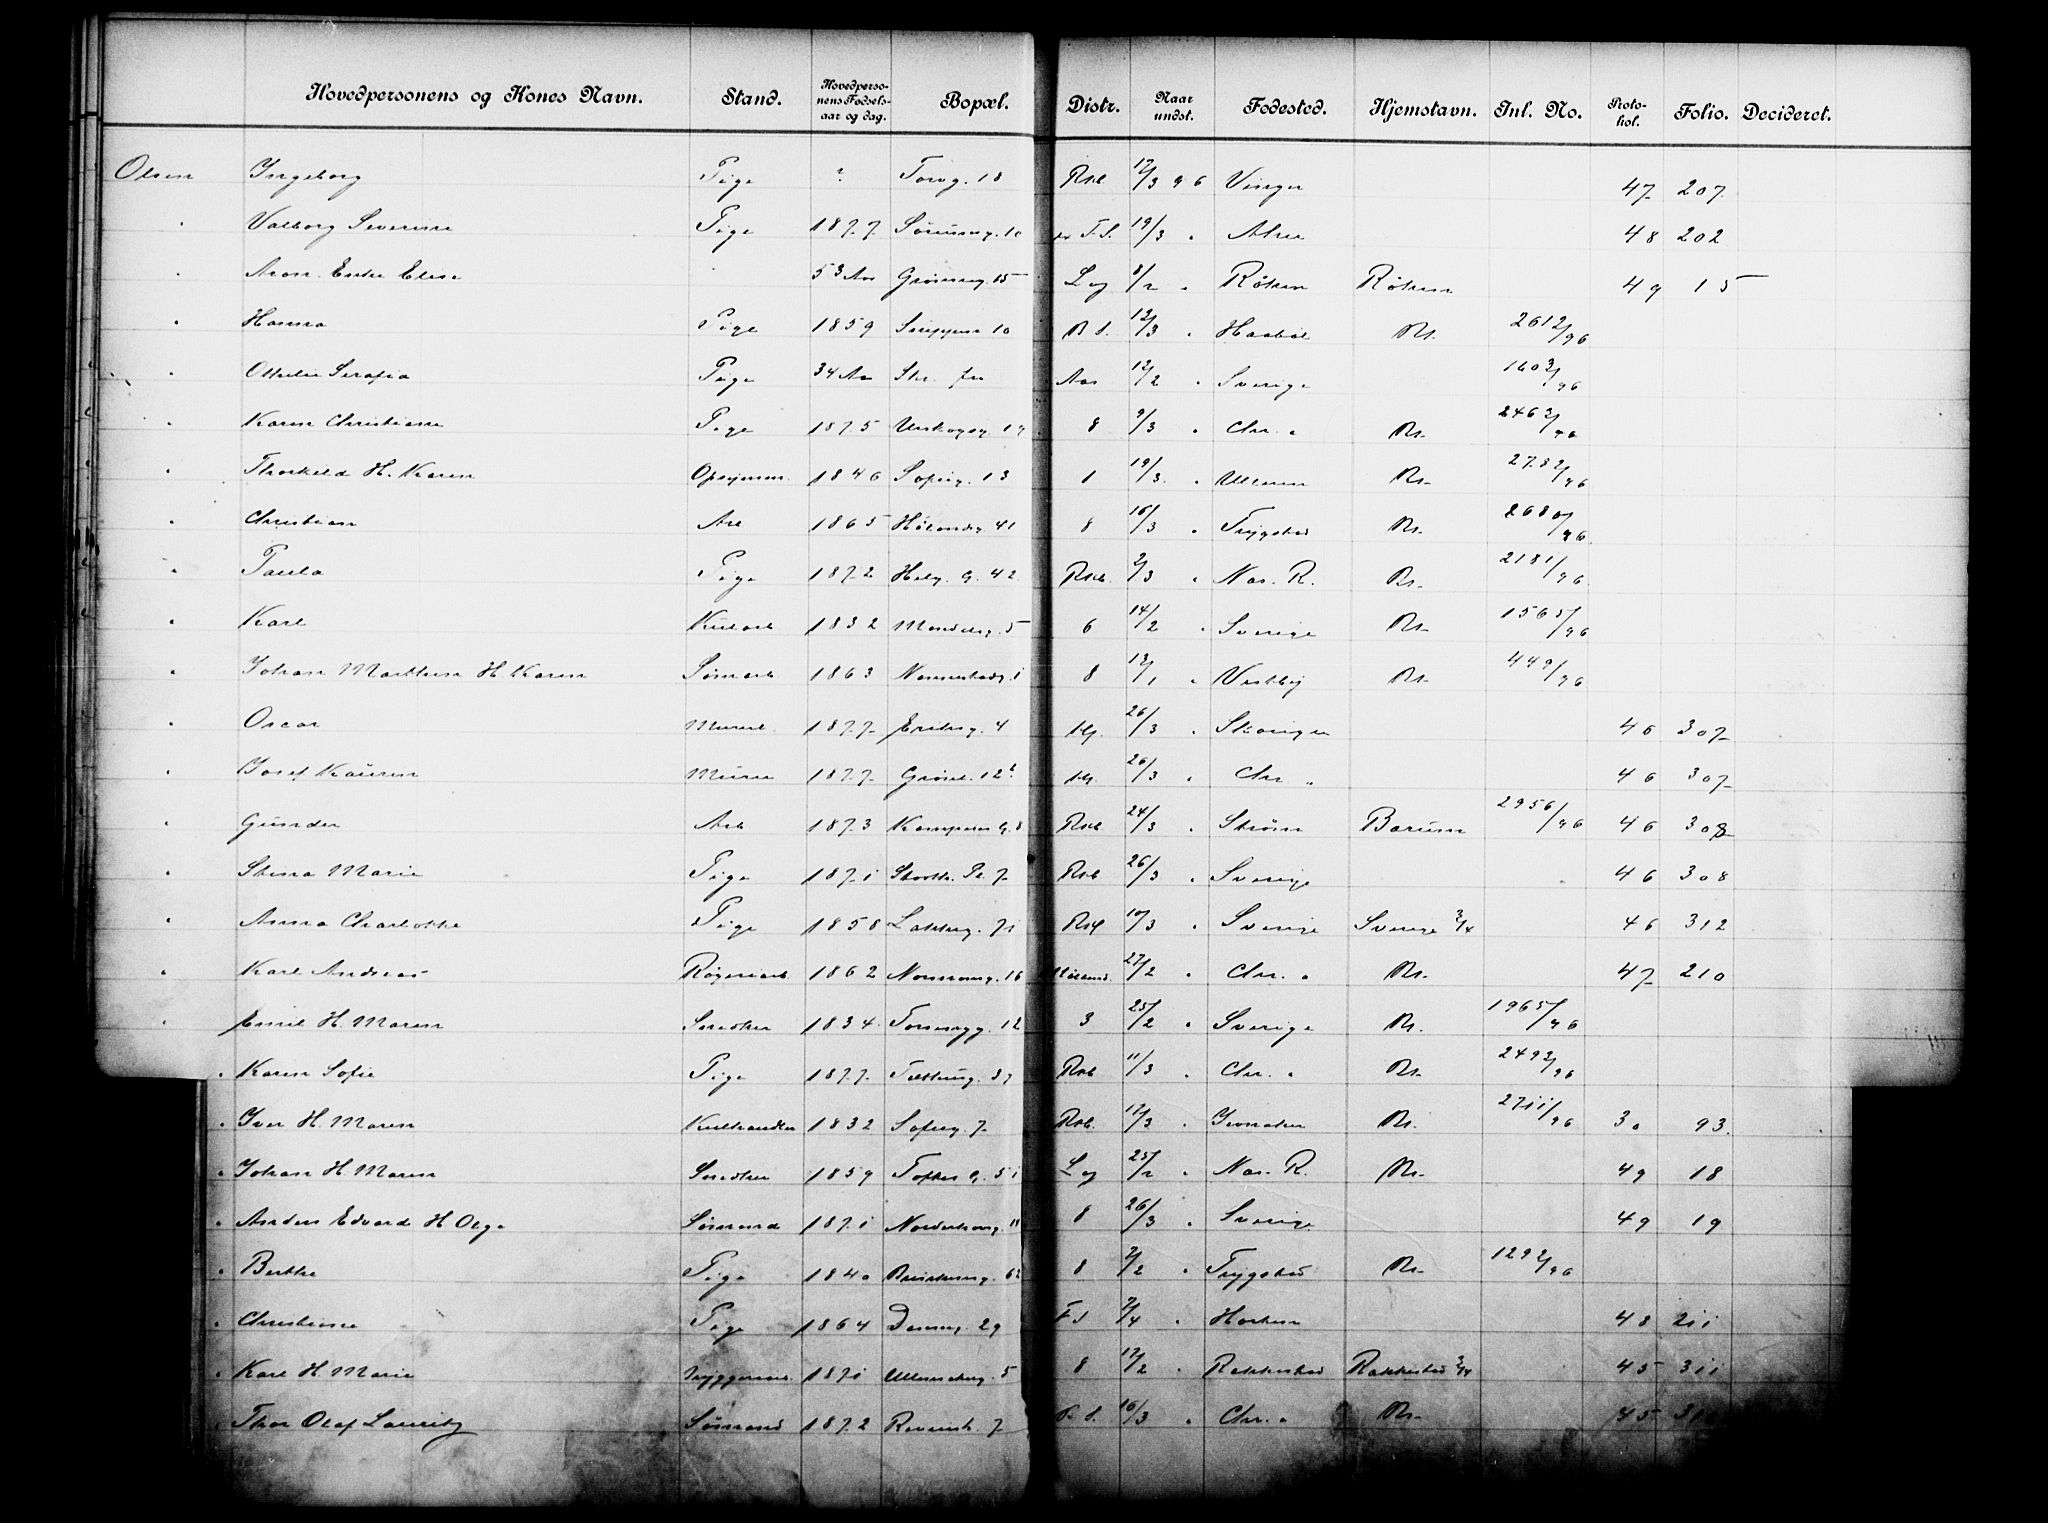 Hovedpersonens og Kones Navn. Stand. Hovedperso-nens Fødsels-aar og dag. Bopæl. Distr. Naar undst. Fødested. Hjemstavn. Inl. No. Proto-kol. Folio. Decideret.
Olsen Ingeborg Pige ? Torvg. 18 Rskb 17/3 96 Vinger 47 207
" Valborg Severine Pige 1877 Sørumsg. 10 19/3 " Aker 48 202
" Elise 53 Aar Grønneg. 15 Lag 8/2 " Røken Røken 49 15
" Hanna Pige 1859 10 B S. 12/3 " Haabøl Kr. 2612/96
" Othilie Serafia Pige 34 Aar Aas 12/2 " Sverige 1603/96
" Karen Christiane Pige 1875 Urskogsg. 19 8 9/3 " Chr. " Kr. 2463/96
" Thorkild H. Karen Opsynsm. 1846 Sofieg. 13 1 19/3 " Ullern Kr. 2732/96
" Christian Arb 1865 41 8 16/3 " Trygstad Kr. 2680/96
" Paula Pige 1872 Helg. G. 42 Rskb. 2/3 " Nas. R. Kr. 2181/96
" Karl Kularb 1832 Mandalsg. 5 6 14/2 " Sverige Kr. 1565/96
" Johan Mathien H. Karen Sømand 1863 Nannestadg. 1 8 13/1 " Vestby Kr. 449/96
" Oscar Murer 1877 Eriksg. 4 Hj. 26/3 " 46 307
" Josef Laurin Murer 1877 Grønl. 12b Hj. 26/3 " Chr. " 46 307
" Gunder Arb 1873 Kampens G. 8 Rskb 24/3 " Strøm Bærum 2956/96 46 308
" Stina Marie Pige 1871 Storth. Pl. 7 Rskb 26/3 " Sverige 46 308
" Anna Charlotte Pige 1858 Lakkeg. 71 Rskb 10/3 " Sverige Sverige 3/4 46 312
" Karl Andreas Røgteriarb 1862 Normannsg. 16 27/2 " Chr. " Kr. 47 210
" Emil H. Maren Snedker 1834 Torsnesgg. 12 3 25/2 " Sverige Kr. 1965/96
" Karen Sofie Pige 1877 Toftesg. 37 Rskb 11/3 " Chr. " Kr. 2492/96
" Iver H. Maren Kulhandler 1832 Sofieg. 7 Rskb. 17/3 " Jevnaker Kr. 2711/96 30 93
" Johan H. Maren Snedker 1859 Toftes G. 51 Lag 25/2 " Nas. R. Kr. 49 18
" Anders Edvard H Olga Sømand 1871 8 26/3 " Sverige 49 19
" Berthe Pige 1840 62 8 2/2 " Trygstad Kr. 1292/96
" Christiane Pige 1864 Damsg. 29 FS 7/4 " 48 211
" Karl H. Marie Bryggeriarb 1871 Ullensakerg. 5 8 17/2 " Rakkestad Rakkestad 3/4 45 311
" Thor Olaf Lauritz Sømand 1872 7 B S. 16/3 " Chr. " Kr. 45